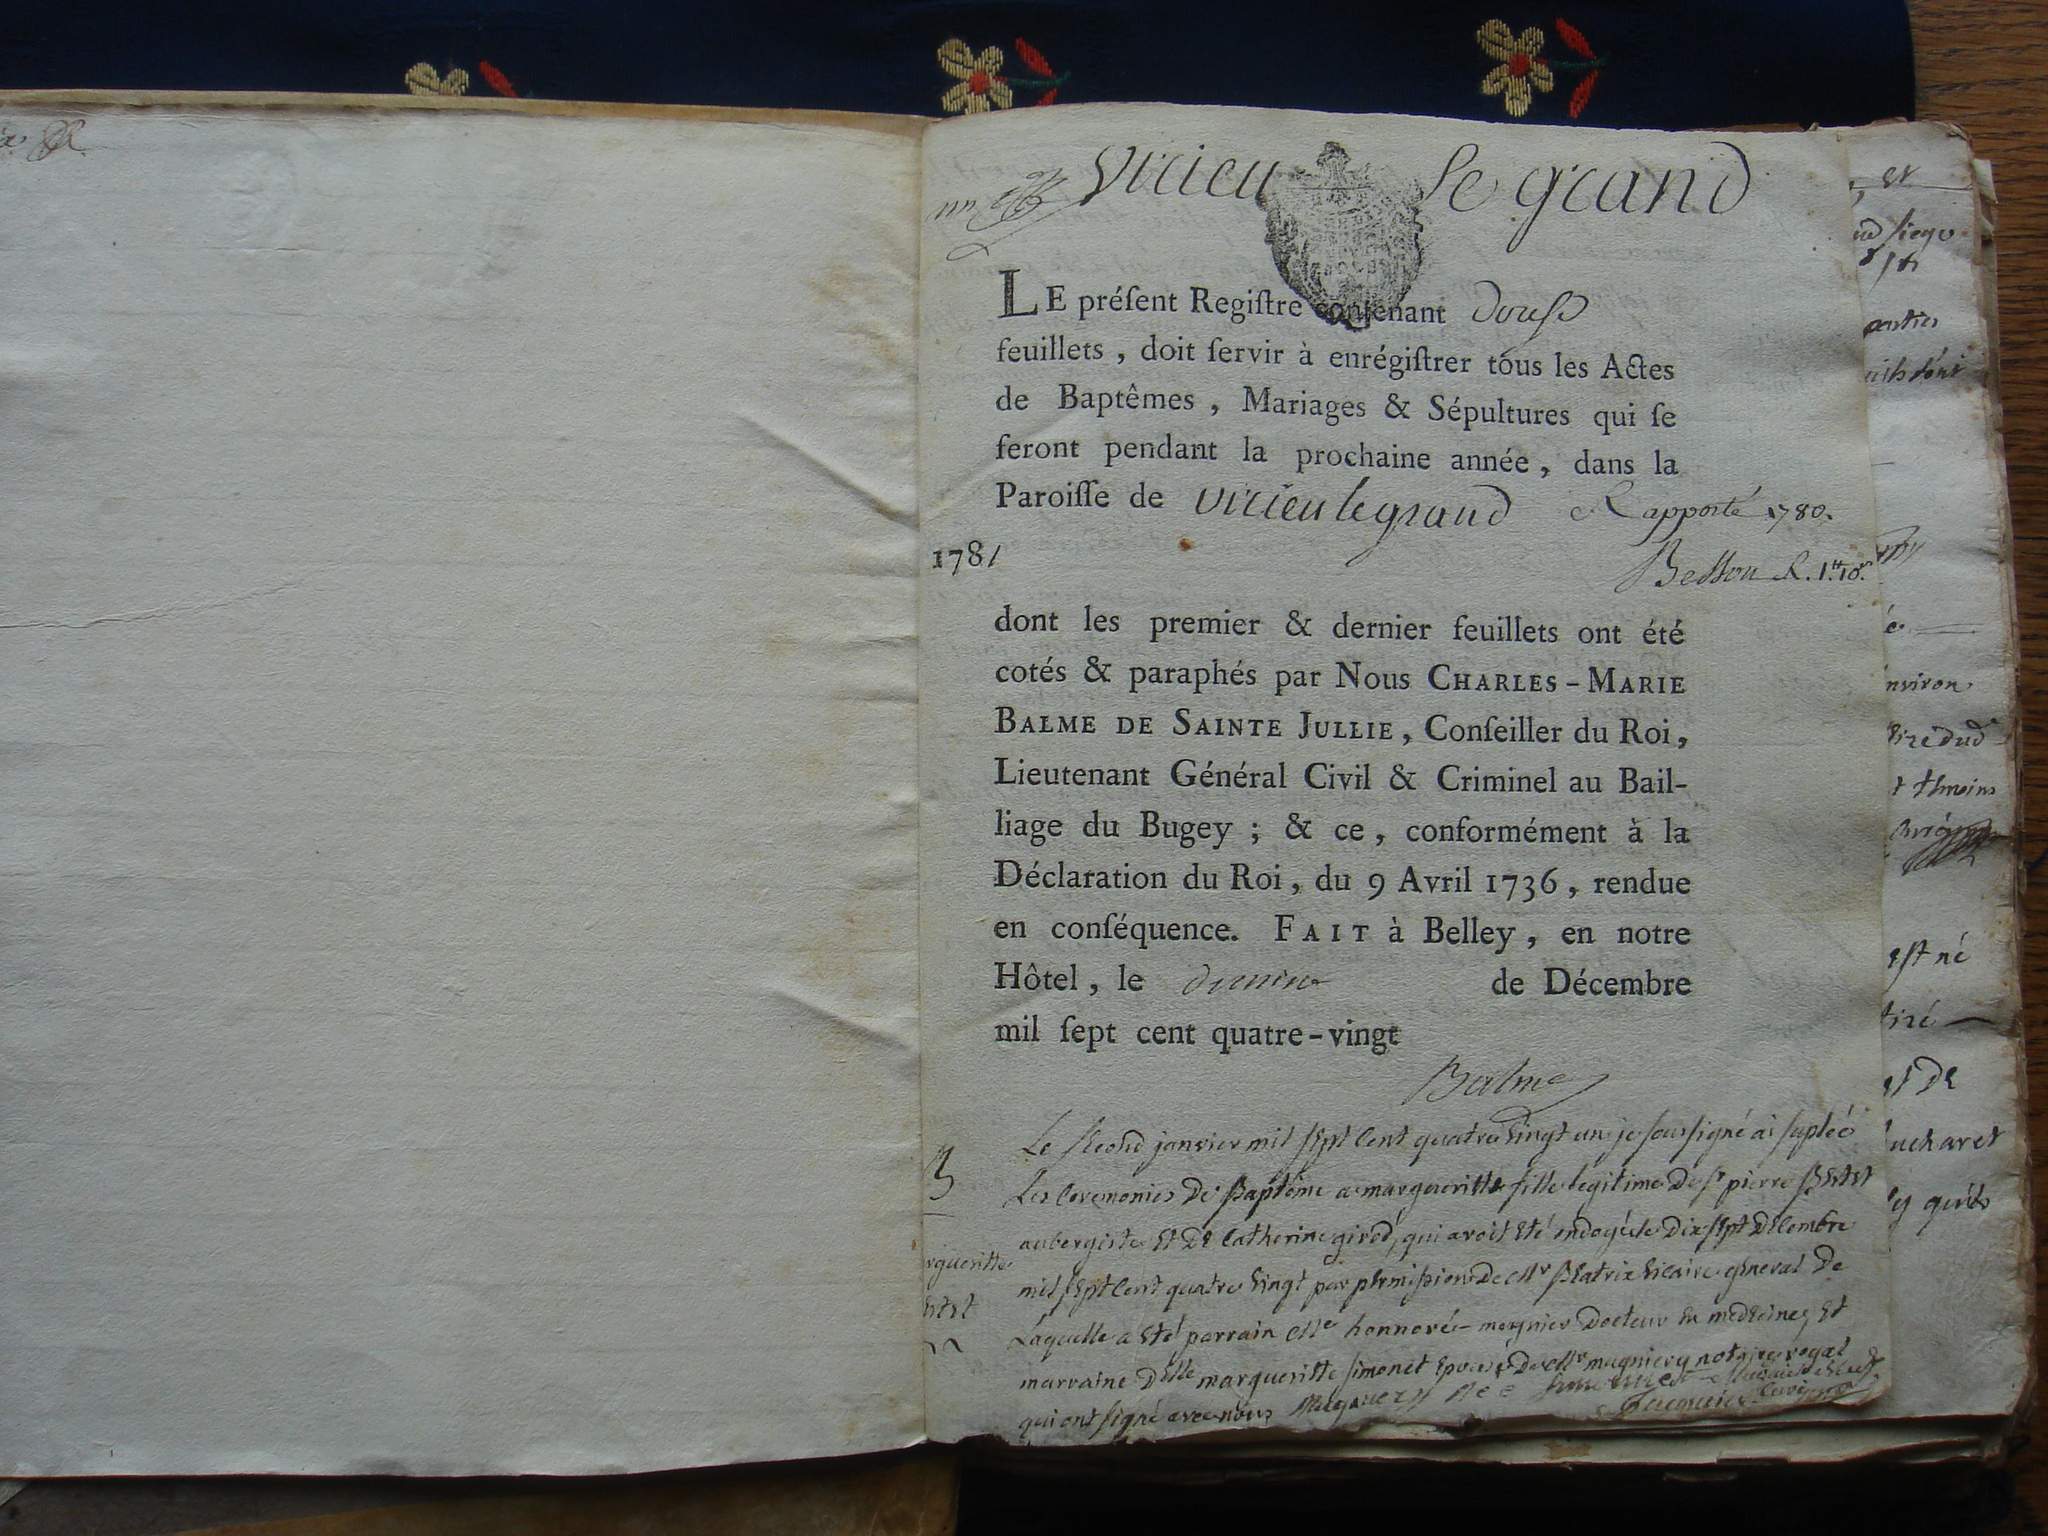 Virieu le grand
LE préſent Regiſtre contenant Douse
feuillets, doit ſervir à enrégiſtrer tous les Actes
de Baptêmes, Mariages & Sépultures qui ſe
feront pendant la prochaine année, dans la
Paroiſſe de Virieu le grand Rapporté 1780.
1781
dont les premier & dernier feuillets ont été
cotés & paraphés par Nous CHARLES-MARIE
BALME DE SAINTE JULLIE, Conſeiller du Roi,
Lieutenant Général Civil & Criminel au Bail-
liage du Bugey; & ce, conformément à la
Déclaration du Roi, du 9 Avril 1736, rendue
en conſéquence. FAIT à Belley, en notre
Hôtel, le dernier de Décembre
mil ſept cent quatre-vingt
Balme
Le second janvier mil sept Cent quatre vingt un je soussigné ai supléé
Les Ceremonies De Baptême a margueritte fille legitime De Sr pierre
aubergiste et De Catherine girod, qui avoit eté ondoyé le Dix sept Decembre
mil sept Cent quatre vingt par permission De Mr Beatrix vicaire general De
Laquelle a eté parrain Mre honnoré Docteur en medecine, et
marraine Delle margueritte simonet De Mr notaire royal
qui ont signé avec nous
environ
est né
et De